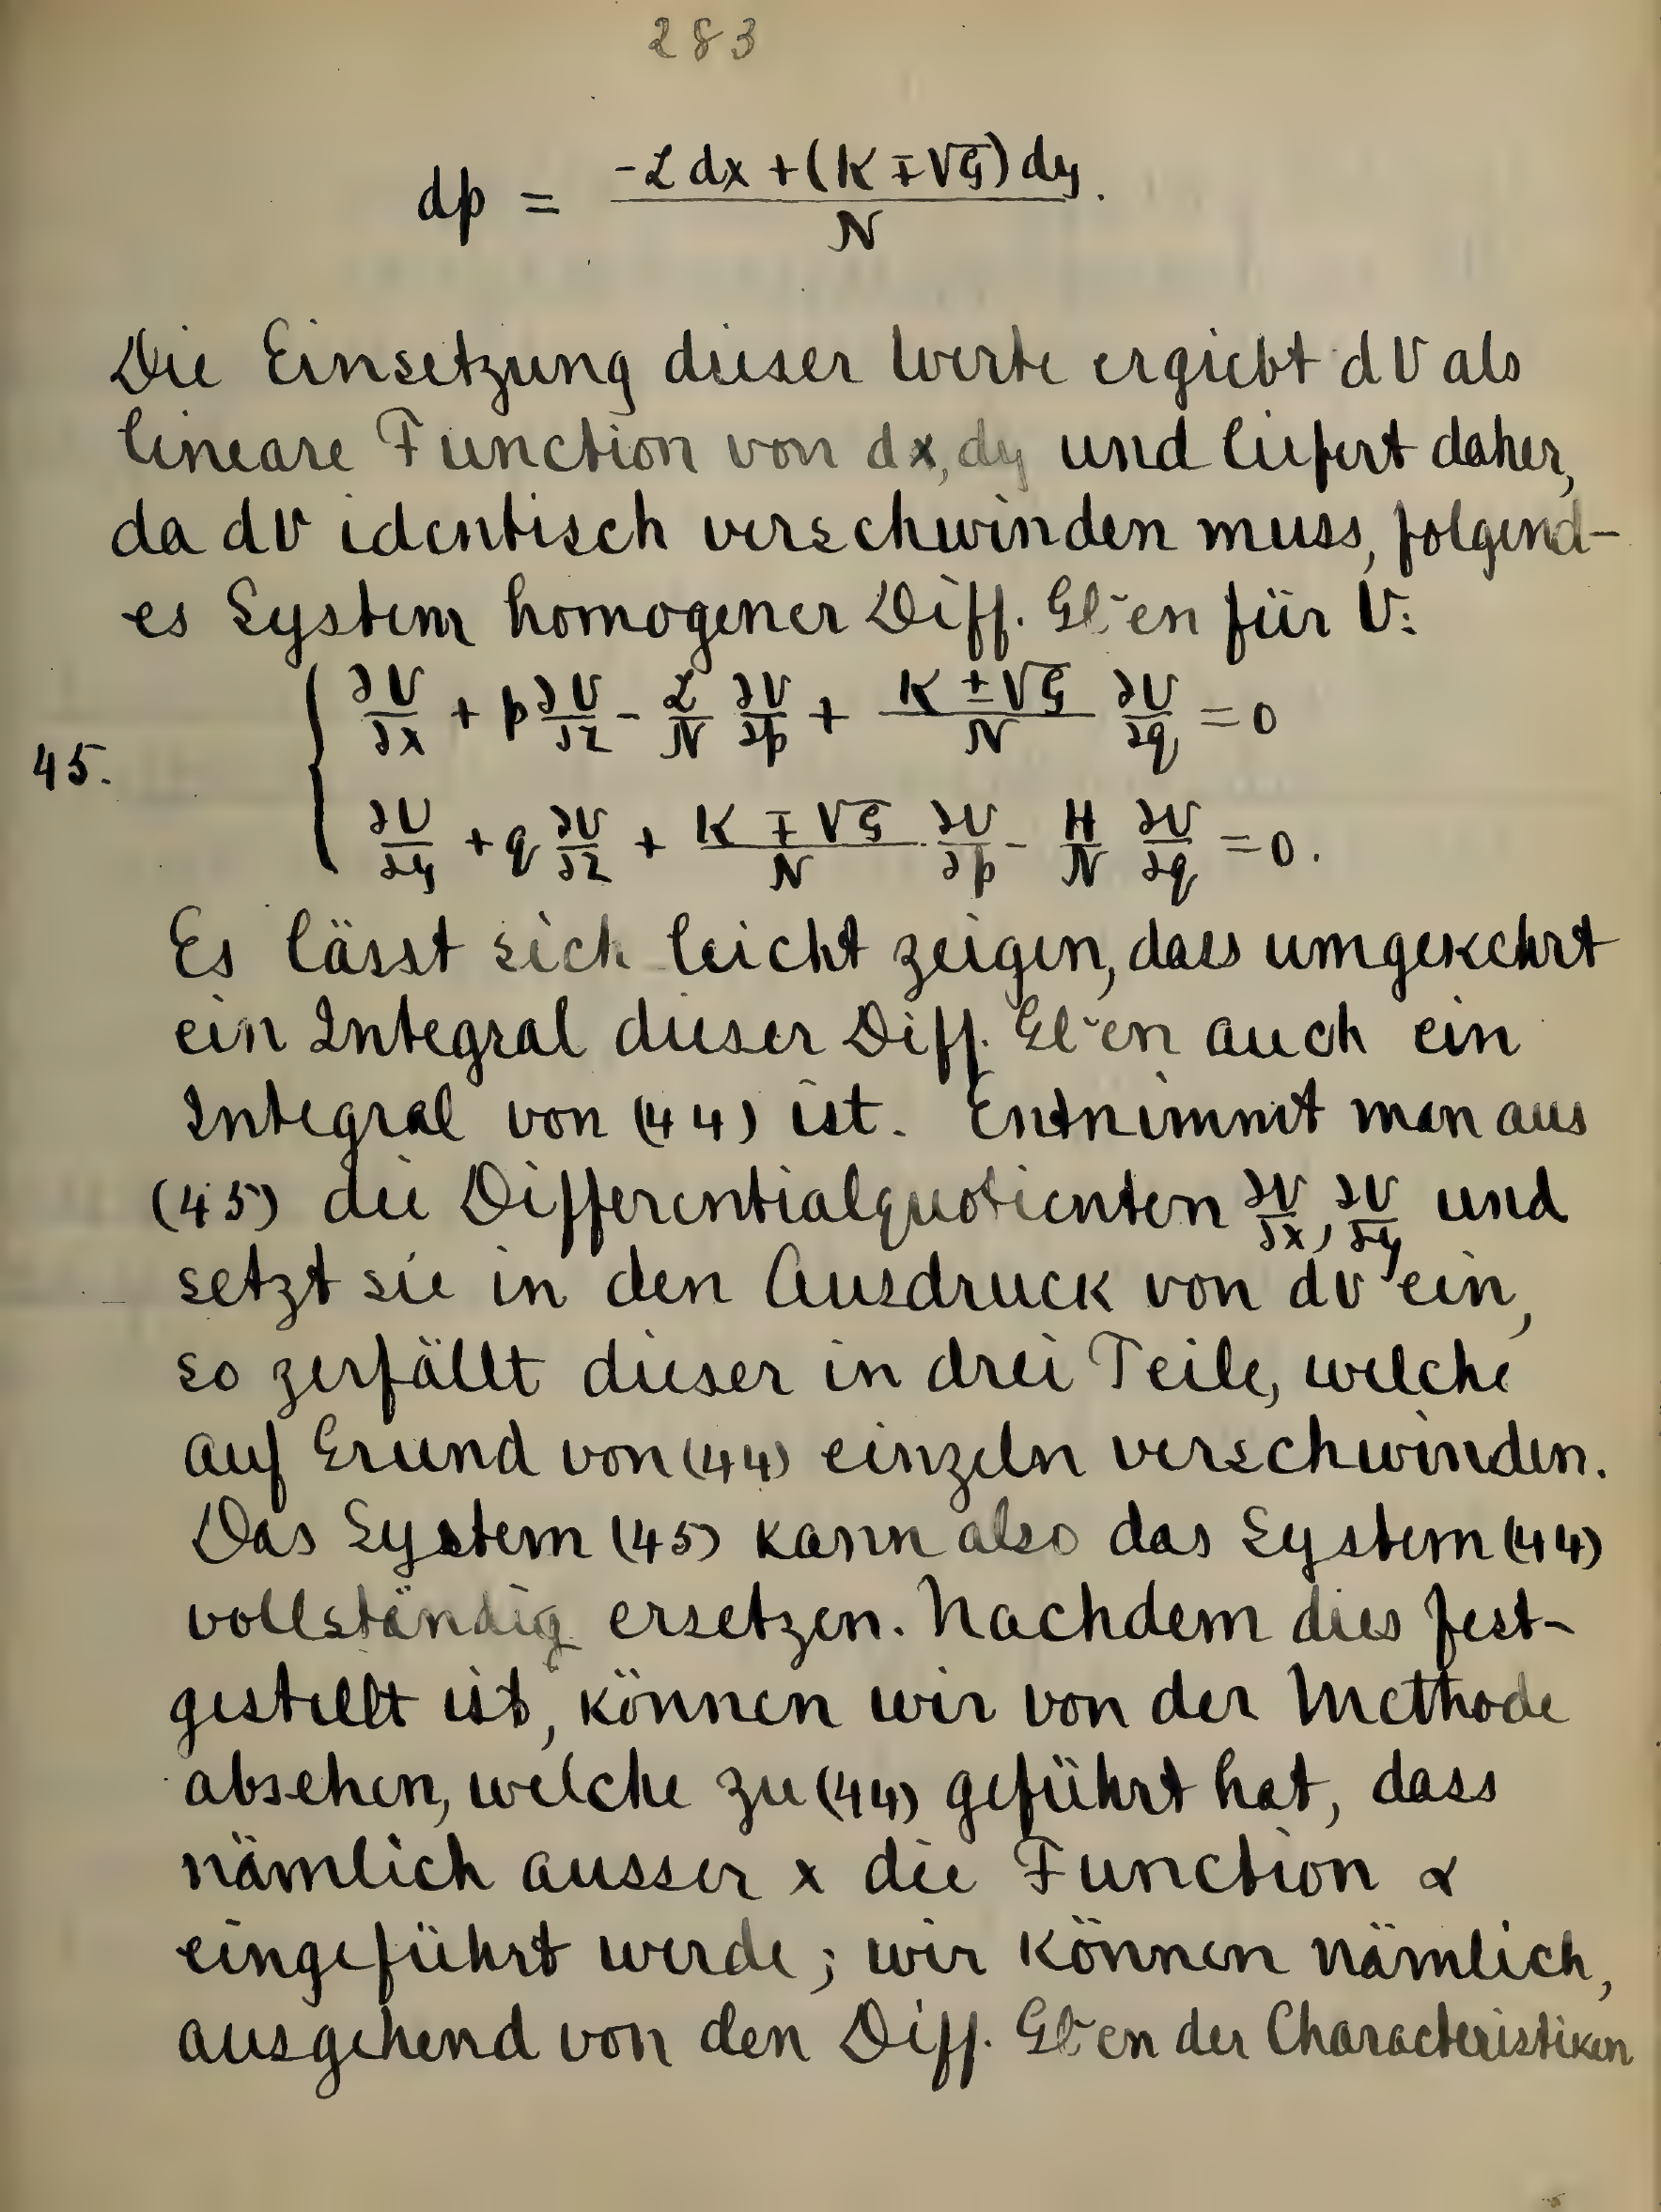 283
dp = \frac{-L dx + (K ∓ √G) dy}{N}.
Die Einsetzung dieser Werte ergiebt dV als
lineare Function von dx, dy und liefert daher,
da dV identisch verschwinden muss, folgend-
es System homogener Diff. Gl~en für V:
45. { \frac{∂V}{∂x} + p \frac{∂V}{∂z} - \frac{L}{N} \frac{∂V}{∂p} + \frac{K ± √G}{N} \frac{∂V}{∂q} = 0
\frac{∂V}{∂y} + q \frac{∂V}{∂z} + \frac{K ∓ √G}{N} \frac{∂V}{∂p} - \frac{H}{N} \frac{∂V}{∂q} = 0.
Es lässt sich leicht zeigen, dass umgekehrt
ein Integral dieser Diff. Gl~en auch ein
Integral von (44) ist. Entnimmt man aus
(45) die Differentialquotienten \frac{∂V}{∂x}, \frac{∂V}{∂y} und
setzt sie in den Ausdruck von dV ein,
so zerfällt dieser in drei Teile, welche
auf Grund von (44) einzeln verschwinden.
Das System (45) kann also das System (44)
vollständig ersetzen. Nachdem dies fest-
gestellt ist, können wir von der Methode
absehen, welche zu (44) geführt hat, dass
nämlich ausser x die Function α
eingeführt werde; wir können nämlich,
ausgehend von den Diff. Gl~en der Characteristiken